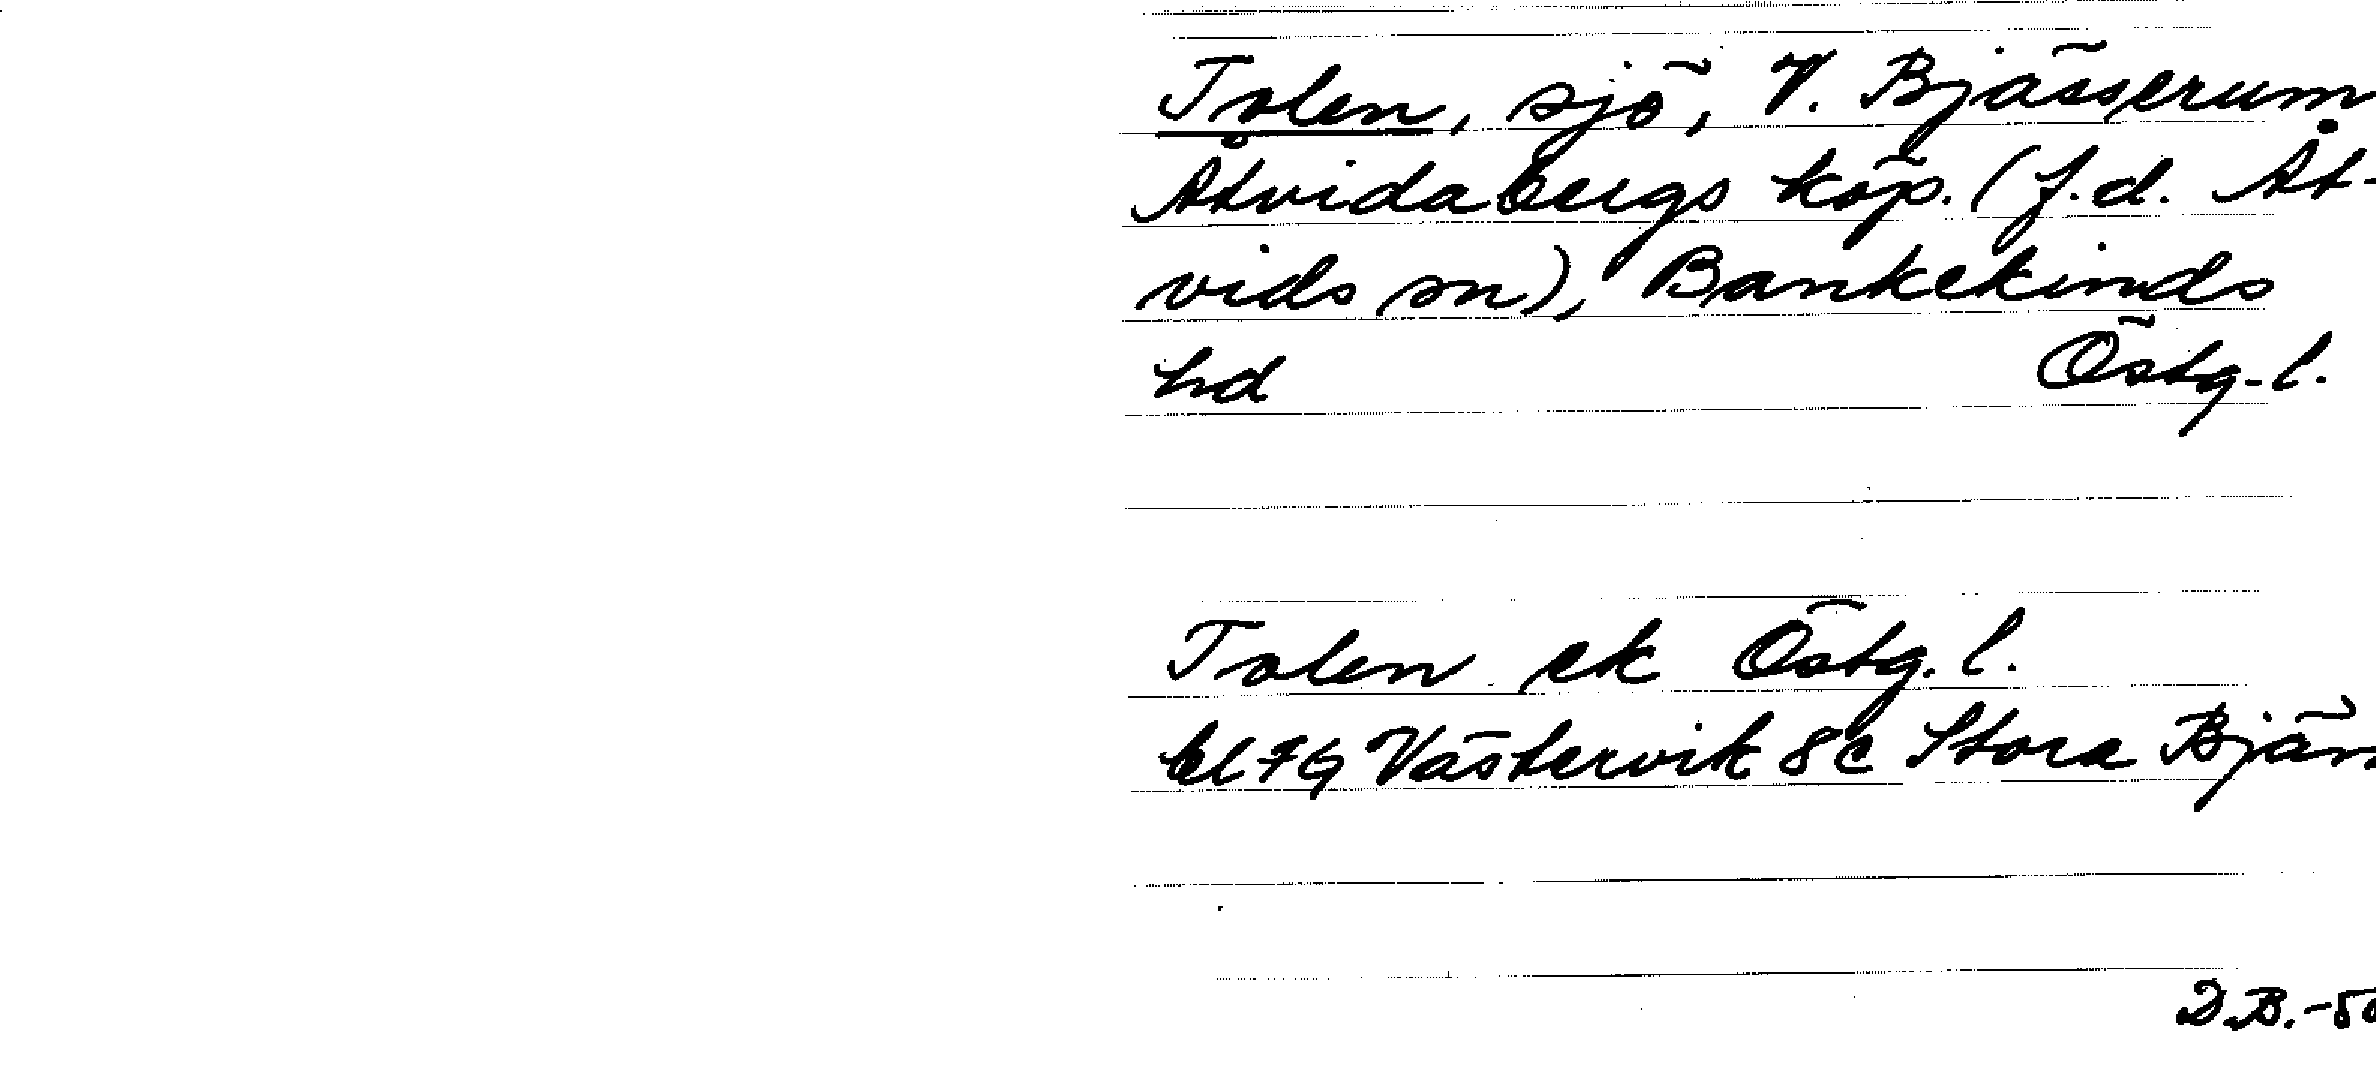 Tolen, sjö, V. Bjässerum
Åtvidabergs köp. (f.d. Åt-
vids sn), Bankekinds
hd Östg. l.
Tolen ek Östg. l.
bl 7G Västervik 8c Stora Bjäm
D.B.-50